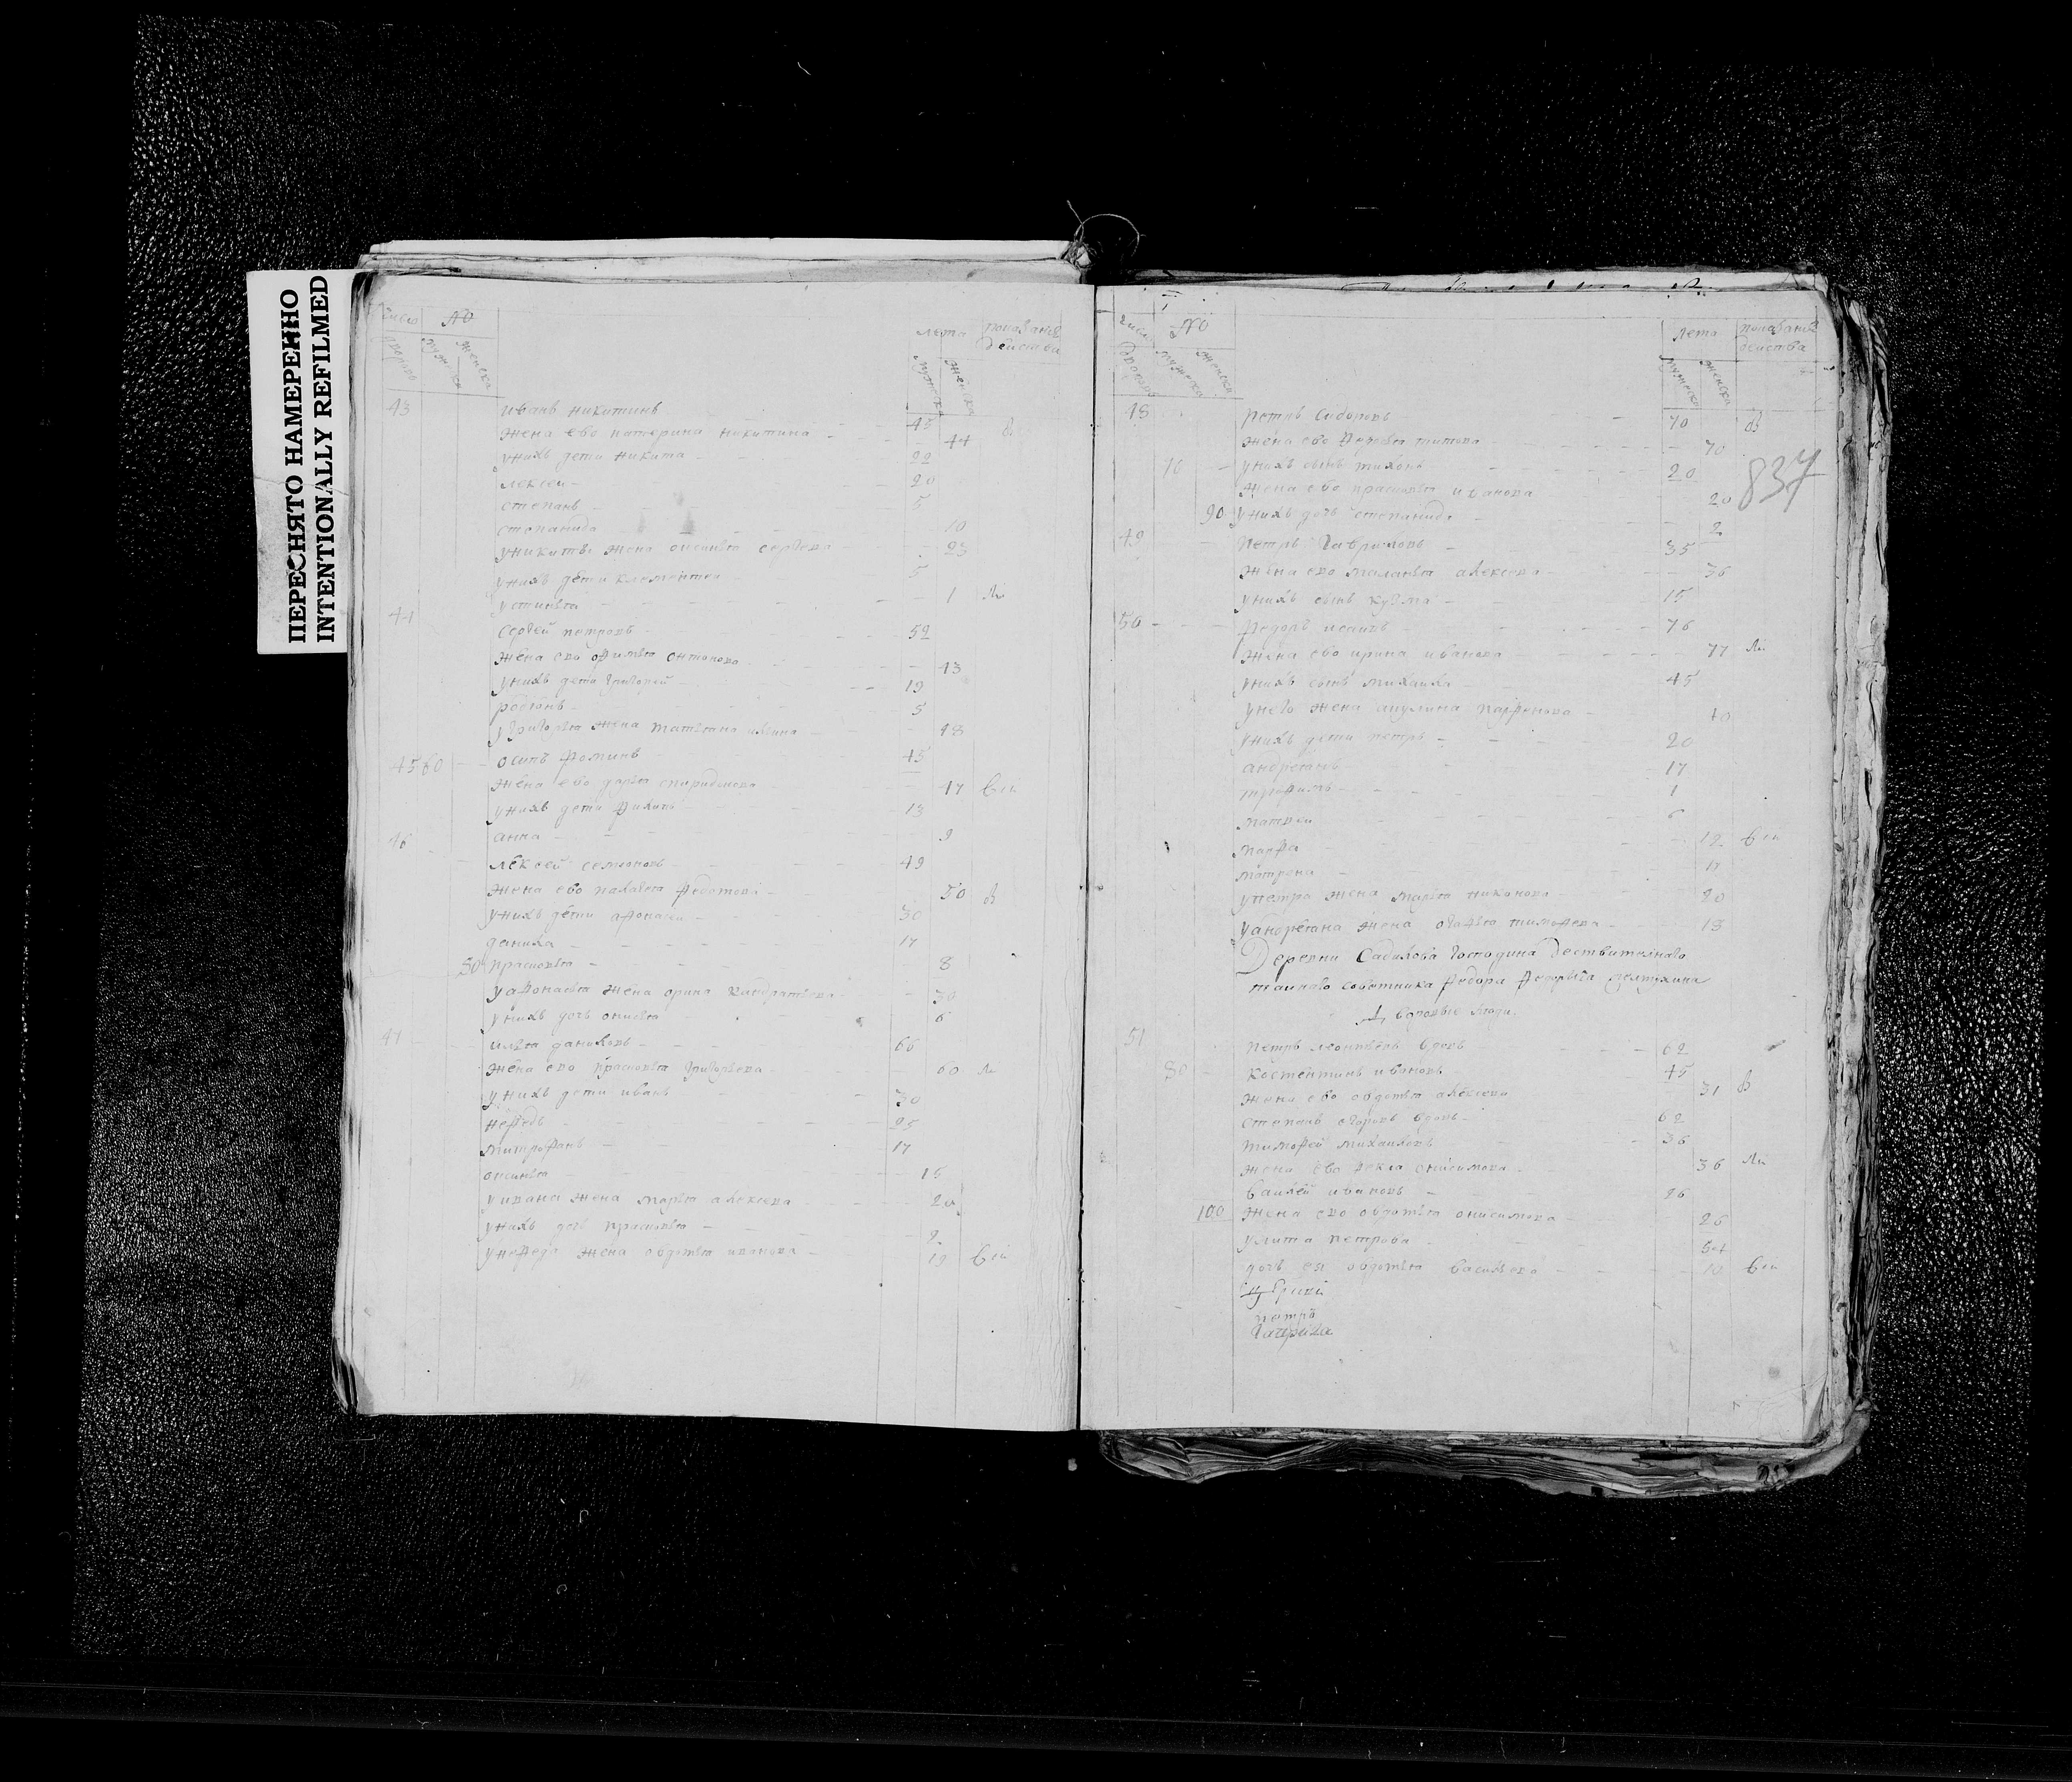 ПЕРЕСНЯТО НАМЕРЕННО
INTENTIONALLY REFILMED
число № лета показание
дворовъ мужеска женска мужеска женска действа
43 иванъ никитинъ 45
жена ево катерина никитина 44 в
унихъ дети никита 22
лексеи 20
степанъ 5
степанида 10
уникиты жена 23
унихъ дети клементеи 5
устинья 1 ли
44 сергей петровъ 52
жена ево офимья онтонова 43
унихъ дети григорей 19
родионъ 5
угригорья жена татьяна 18
45 60 осипъ фоминъ 45
жена ево дарья спиридонова 47 вси
унихъ дети филипъ 13
46 анна 9
лексей семионовъ 49
жена ево палагья федотова 50 в
унихъ дети афонасеи 30
данила 17
80 прасковья 8
уафонасья жена орина кандратьева 30
унихъ дочь онисья 6
47 илья даниловъ 66
жена ево прасковья григорьева 60 ли
унихъ дети иванъ 30
нефедъ 25
митрофанъ 17
оксинья 15
уивана жена марья алексева
унихъ дочь прасковья 2
унефеда жена овдотья иванова 19 вси
число № лета показание
дворовъ мужеска женска мужеска женска действа
837
48 петръ сидоровъ 70 в
жена ево федосья титова 70
70 унихъ сынъ тихонъ 20
жена ево прасковья иванова 20
90 унихъ дочь степанида 2
49 петръ гавриловъ 35
жена ево маланья алексева 36
унихъ сынъ кузма 15
50 федоръ 76
жена ево ирина иванова 77 ли
унихъ сынъ михаила 45
унего жена акулина парфенова 40
унихъ дети петръ 20
андреянъ 17
трофимъ 1
матвеи 6
марфа 12 вси
матрена 11
упетра жена марья никонова 20
уандреяна жена агафья тимофева 18
Деревни Садикова господина деиствителнаго
таинаго советника федора федорыча желтухина
Дворовые люди
51 петръ леонтьевъ вдовъ 62
80 костентинъ ивановъ 45
жена ево овдотья алексева 31 в
степанъ егоровъ вдовъ 62
тимофей михаиловъ 36
жена ево фекла онисимова 36 ли
василей ивановъ 26
100 жена ево овдотья онисимова 26
улита петрова 54
дочь ея овдотья васильева 10 вси
петръ
гаврила